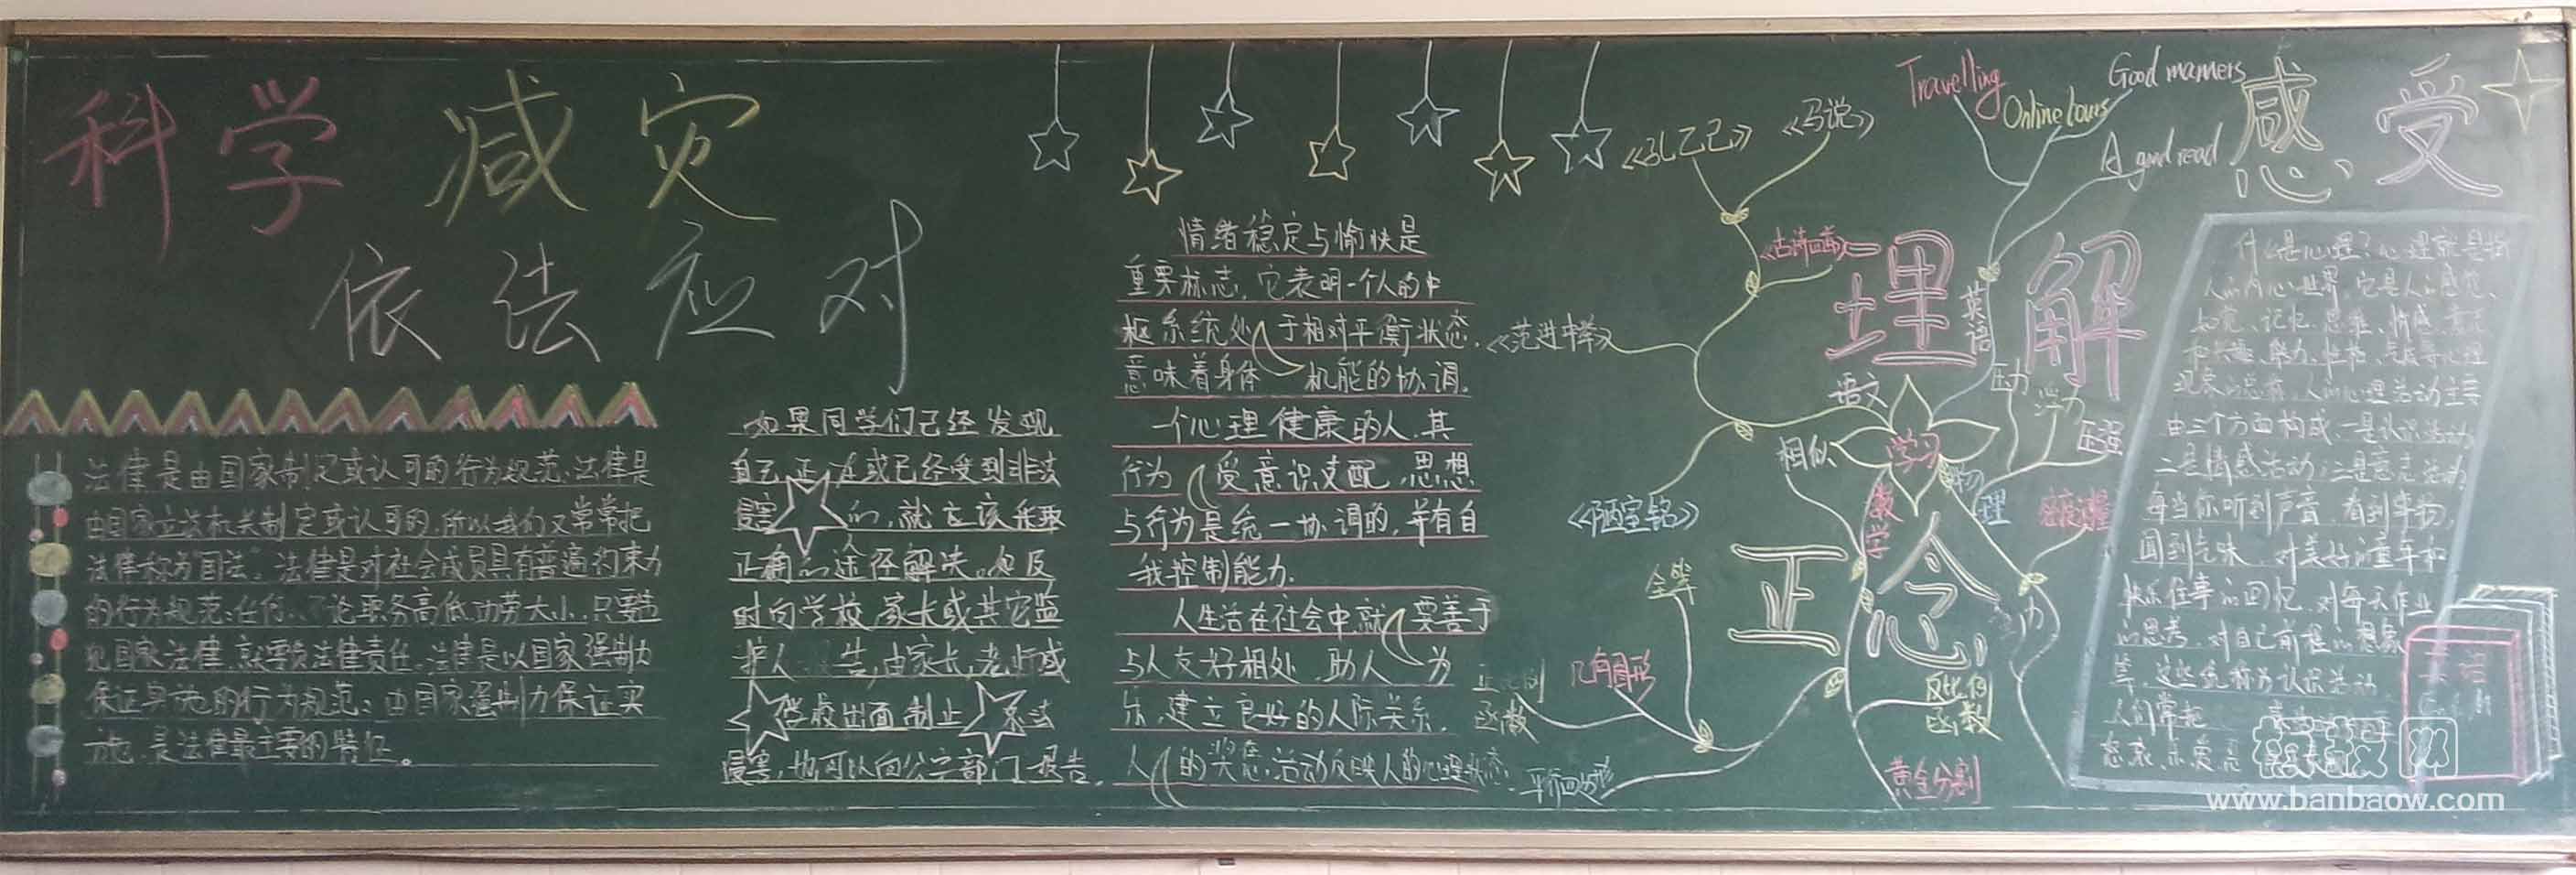 科学减灾
依法应对
法律是由国家制定或认可的行为规范,法律是
由国家立法机关制定或认可的,所以我们又常常把
法律称为"国法"。法律是对社会成员具有普遍约束力
的行为规范:任何 不论职务高低,功劳大小,只要违
犯国家法律,就要负法律责任。法律是以国家强制力
保证实施的行为规范:由国家强制力保证实
施,是法律最主要的特征。
如果同学们已经发现
自己正在或已经受到非法
侵害的,就应该采取
正确的途径解决。应及
时向学校,家长或其它监
护人 告,由家长,老师或
学校出面制止 法
侵害,也可以向公安部门报告。
情绪稳定与愉快是
重要标志,它表明一个人的中
枢系统处于相对平衡状态,
意味着身体机能的协调。
一个心理健康的人,其
行为受意识支配,思想
与行为是统一协调的,并有自
我控制能力.
人生活在社会中,就要善于
与人友好相处,助人为
乐,建立良好的人际关系.
人的 活动反映人的心理状态.
理解
正念
学习
语文
《孔乙己》
《马说》
《古诗四首》
《范进中举》
《陋室铭》
英语
Travelling
Online tours
Good manners
A good read
数学
相似
全等
几何图形
正比例
函数
平行四边形
反比例
函数
黄金分割
物理
压力
浮力
压强
感受
什么是心理?心理就是指
人的内心世界,它是人的感觉、
知觉、记忆、思维、情感、意志
和兴趣、能力、性格、气质等心理
现象的总称,人的心理活动主要
由三个方面构成:一是认识活动
二是情感活动;三是意志活动;
每当你听到声音,看到事物,
闻到气味,对美好的童年和
快乐往事的回忆,对每天作业
的思考,对自己前程的想象
等,这些统称为认识活动
人们常把
英语
板报网
www.banbaow.com